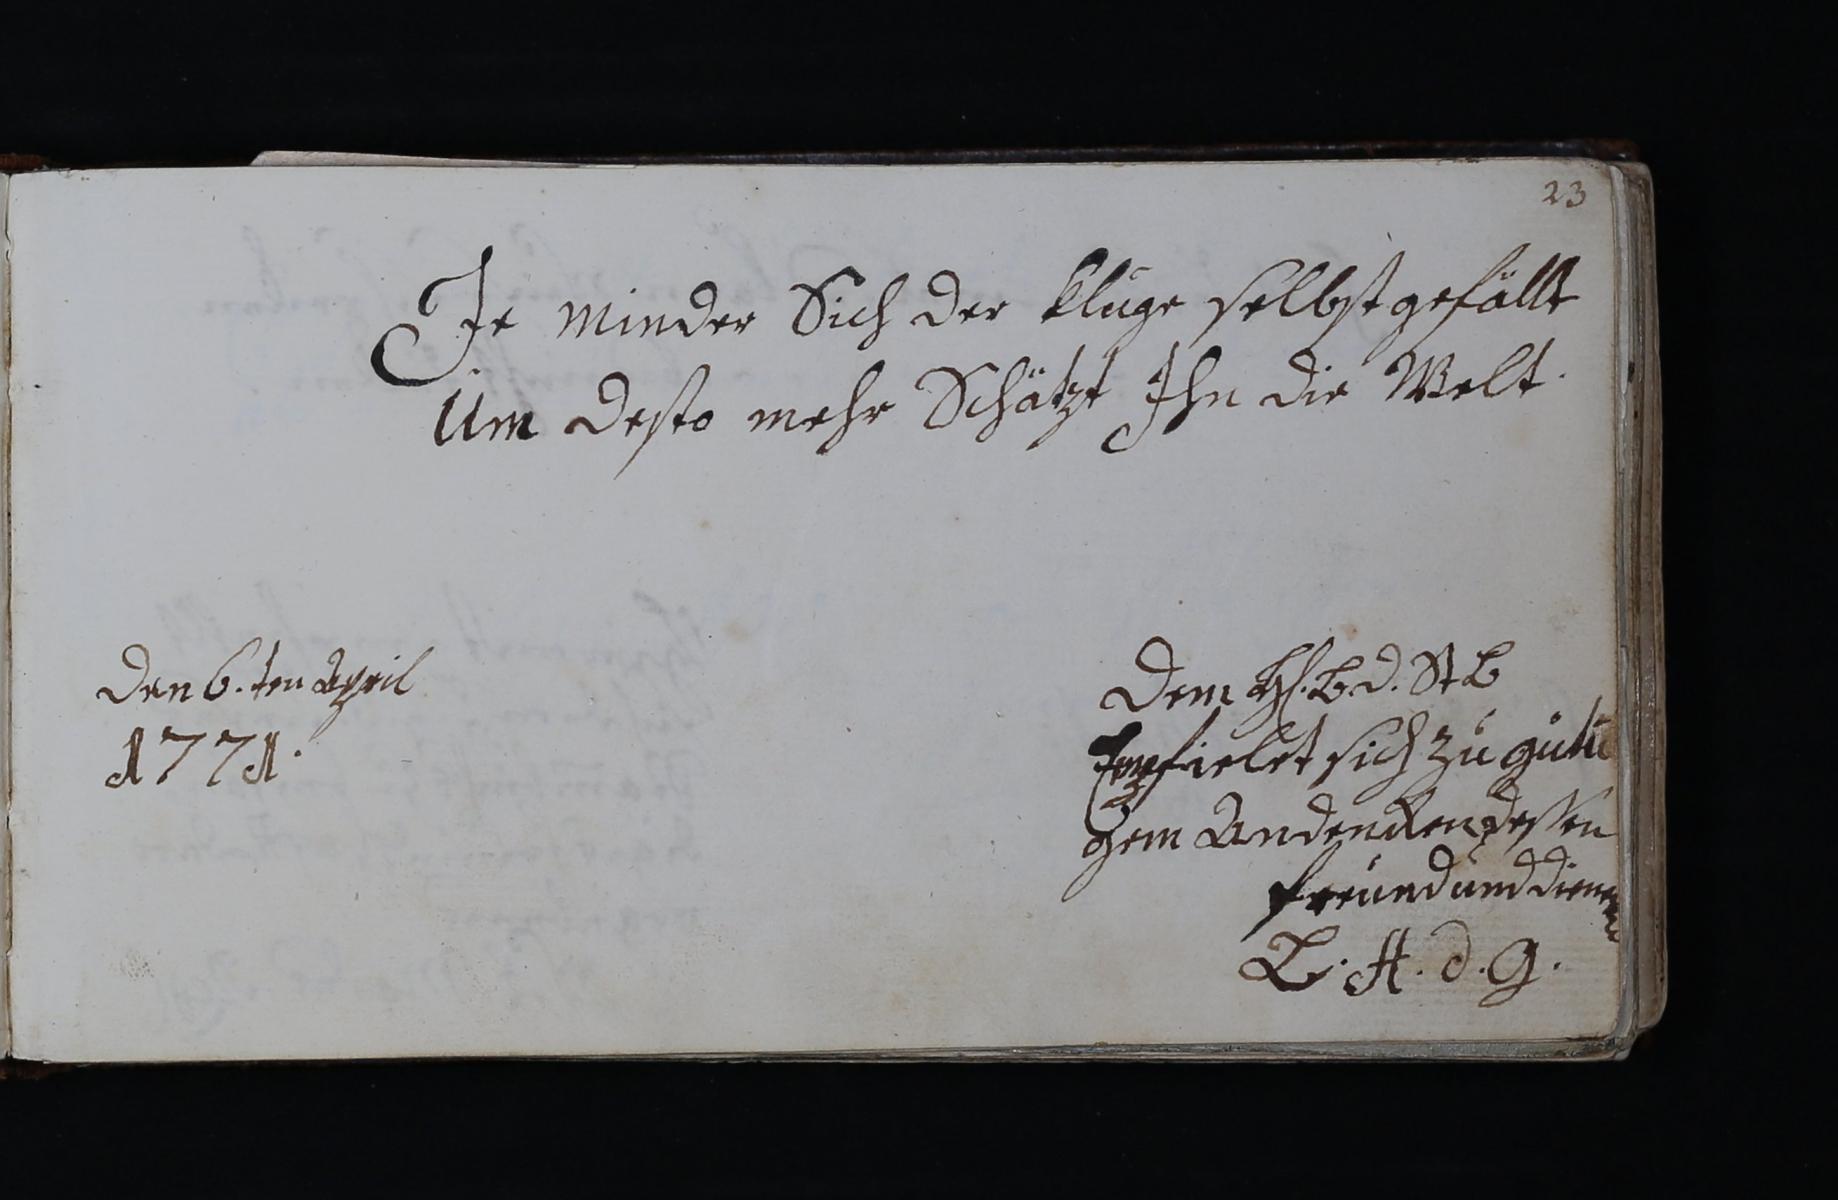 23
Je minder Sich der kluge selbst gefällt
Um desto mehr Schätzt Ihn die Welt.
Den 6.ten April
1771.
Dem HE. B. d. St B
Empfielet sich zu gütti
gem Andencken dessen
freund und diener
L. H. d. G.